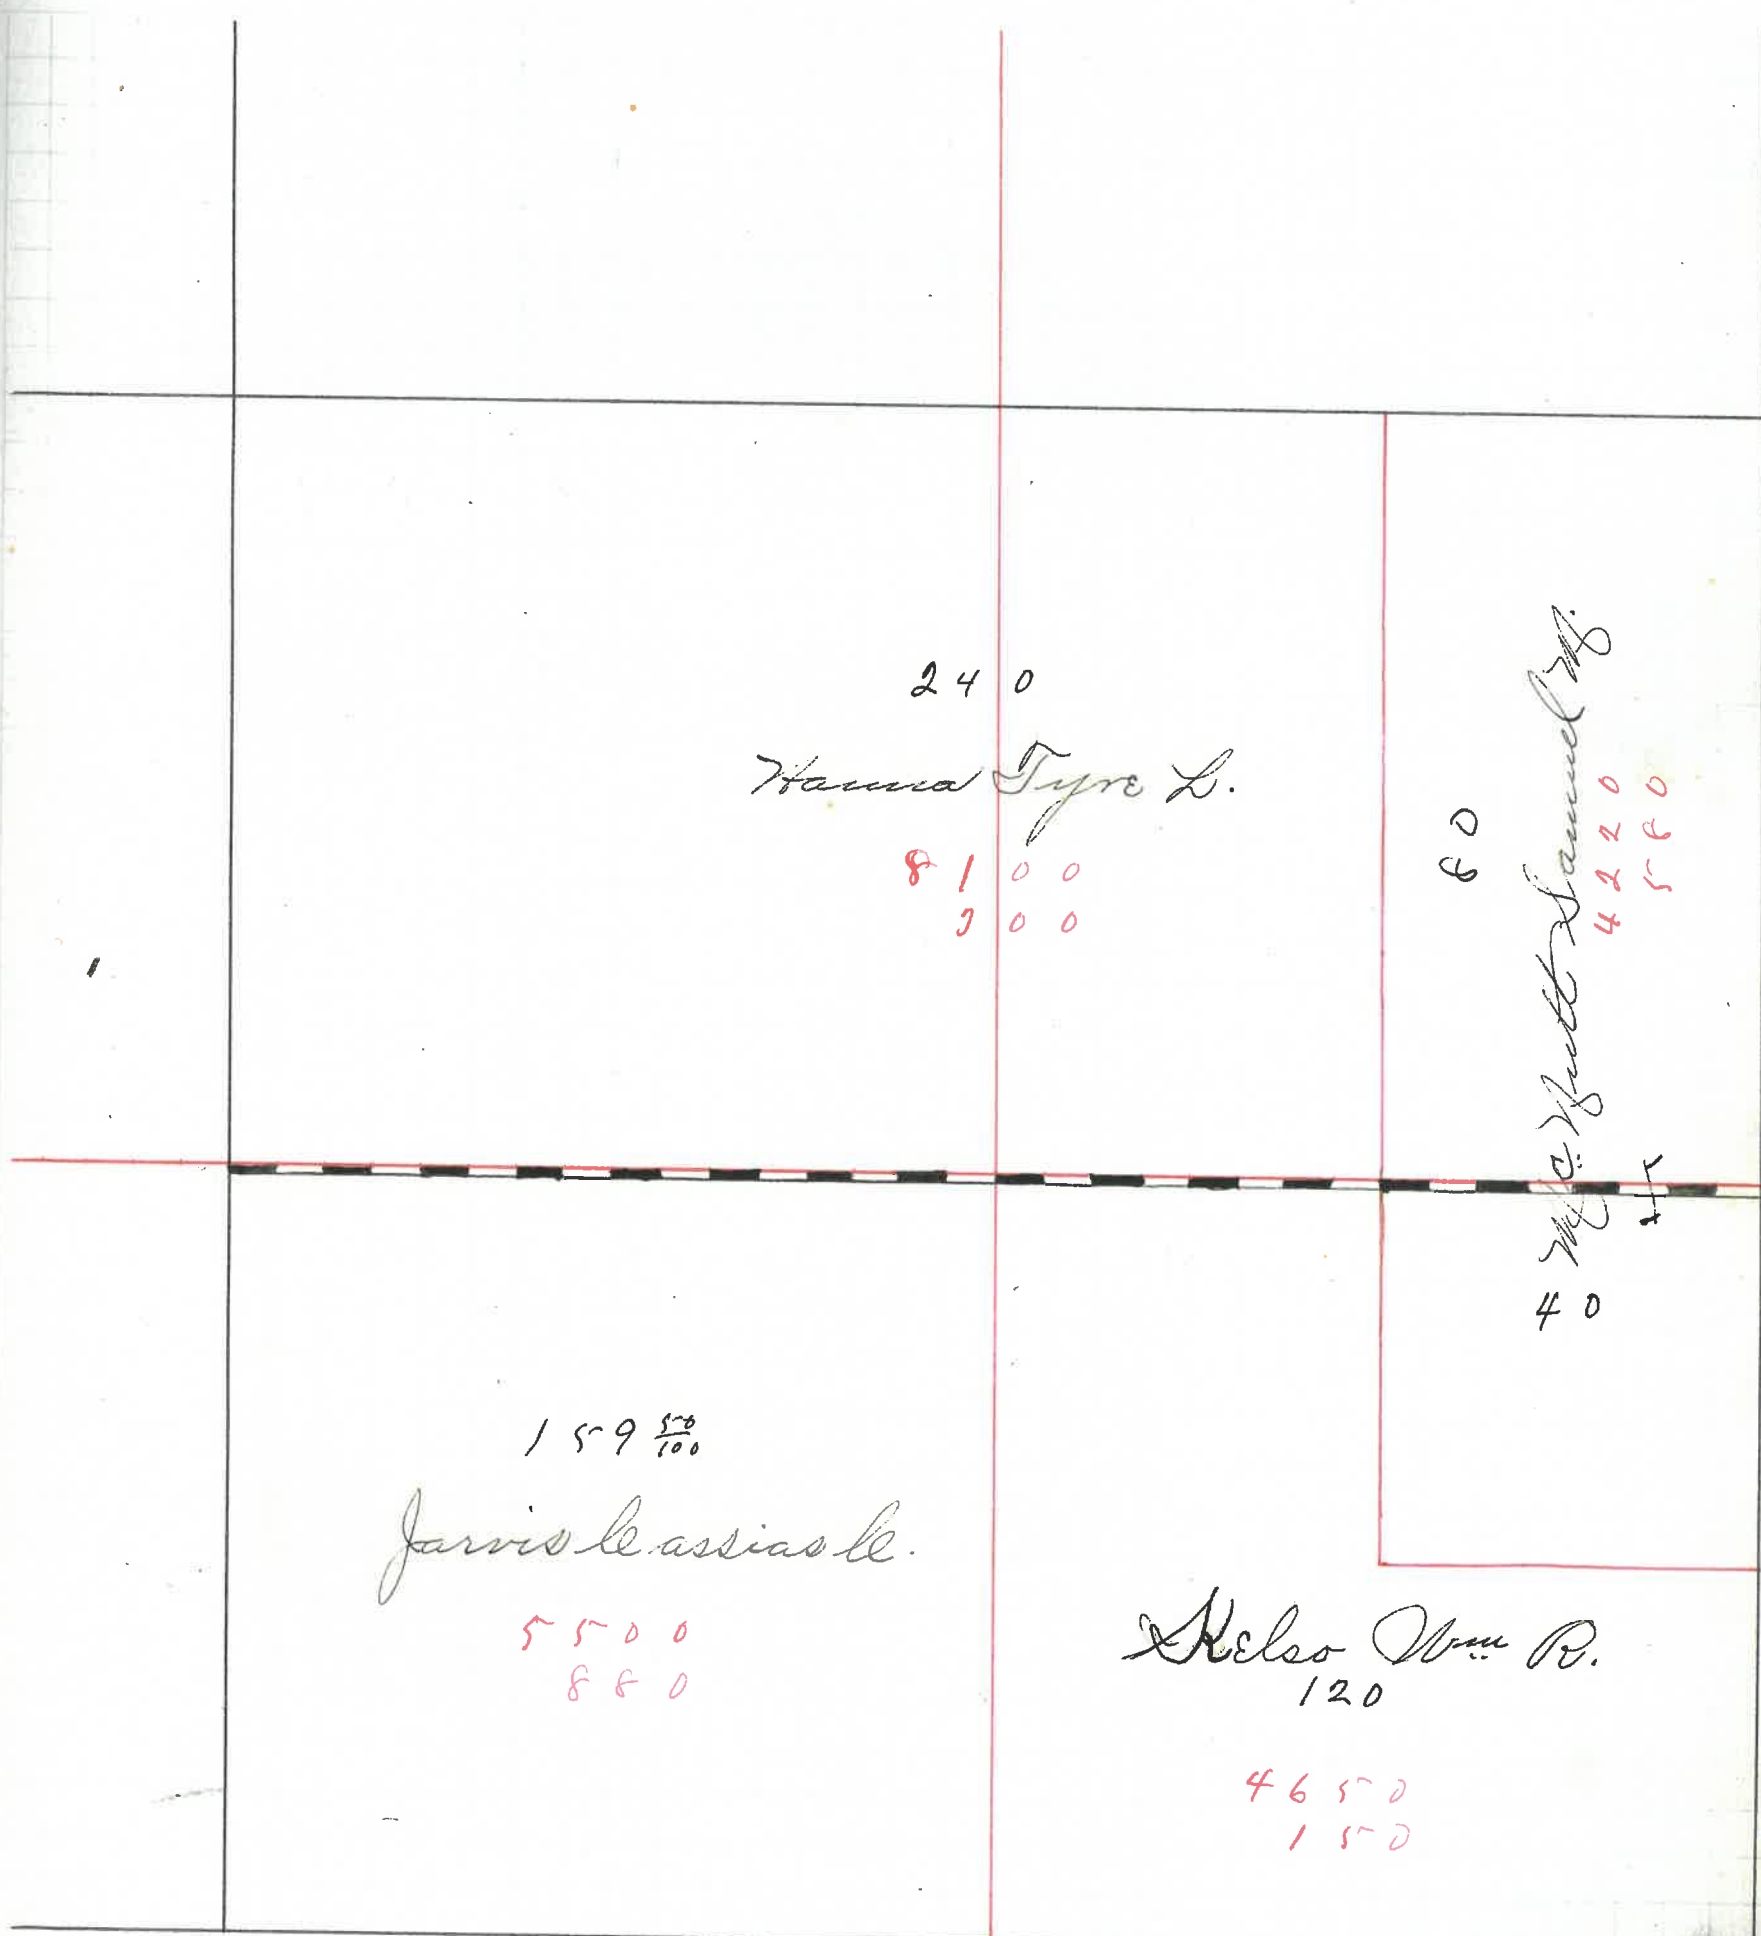 240
Hanna Tyre L.
8100
900
80
McNutt Samuel M.
4220
580
40
159 50/100
Jarvis Cassias C.
5500
880
Kelso Wm R.
120
4650
150